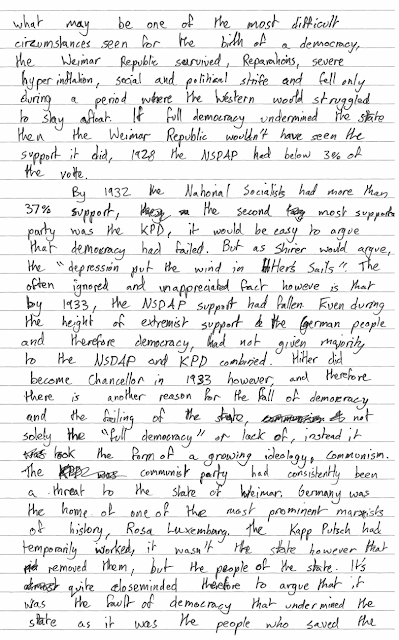 what may be one of the most difficult
circumstances seen for the birth of a democracy,
the Weimar Republic survived, Reparations, severe
hyperinflation, social and political strife and fell only
during a period where the Western world struggled
to stay afloat. If full democracy undermined the state
then the Weimar Republic wouldn't have seen the
support it did, 1928 the NSPAP had below 3% of
the vote.
By 1932 the National Socialists had more than
37% support, the second most support
party was the KPD, it would be easy to argue
that democracy had failed. But as Shirer would argue,
the "depression put the wind in Hitlers Sails". The
often ignored and unappreciated fact however is that
by 1933, the NSDAP support had fallen. Even during
the height of extremist support the German people
and therefore democracy, had not given majority
to the NSDAP and KPD combined. Hitler did
become Chancellor in 1933 however, and therefore
there is another reason for the fall of democracy
and the failing of the state, not
solely the "full democracy" or lack of, instead it
took the form of a growing ideology, communism.
The communist party had consistently been
a threat to the state of Weimar. Germany was
the home of one of the most prominent marxists
of history, Rosa Luxembourg. The Kapp Putsch had
temporarily worked, it wasn't the state however that
removed them, but the people of the state. It's
quite closeminded therefore to argue that it
was the fault of democracy that undermined the
state as it was the people who saved the